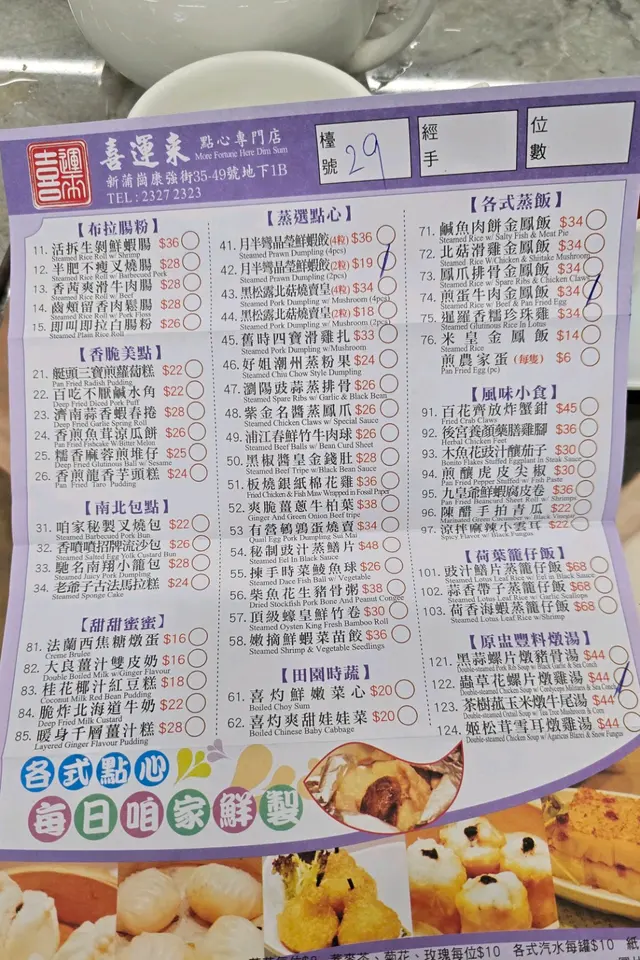 喜運來 點心專門店
More Fortune Here Dim Sum
新蒲崗康強街35-49號地下1B
TEL : 2327 2323
檯號 29
經手
位數
【布拉腸粉】
11. 活拆生剝鮮蝦腸 $36
Steamed Rice Roll w/ Shrimp
12. 半肥不瘦叉燒腸 $28
Steamed Rice Roll w/ Barbecued Pork
13. 香茜爽滑牛肉腸 $28
Steamed Rice Roll w/ Beef
14. 齒頰留香肉鬆腸 $28
Steamed Rice Roll w/ Pork Floss
15. 即叫即拉白腸粉 $26
Steamed Rice Roll
【香脆美點】
21. 艇頭三寶煎蘿蔔糕 $22
Pan Fried Radish Pudding
22. 百吃不厭鹹水角 $22
Deep Fried Diced Pork Puff
23. 濟南蒜香蝦春捲 $28
Deep Fried Garlic Spring Roll
24. 香煎魚茸涼瓜餅 $26
Pan Fried Fishcake w/Bitter Melon
25. 糯香麻蓉煎堆仔 $25
Deep Fried Glutinous Ball w/ Sesame
26. 香煎龍香芋頭糕 $24
Pan Fried Taro Pudding
【南北包點】
31. 咱家秘製叉燒包 $22
Steamed Barbecued Pork Bun
32. 香噴噴招牌流沙包 $26
Steamed Salted Egg Yolk Custard Bun
33. 馳名南翔小籠包 $28
Steamed Juicy Pork Dumpling
34. 老爺子古法馬拉糕 $24
Steamed Sponge Cake
【甜甜蜜蜜】
81. 法蘭西焦糖燉蛋 $16
Creme Brulee
82. 大良薑汁雙皮奶 $16
Double Boiled Milk w/Ginger Flavour
83. 桂花椰汁紅豆糕 $18
Coconut Milk Red Bean Pudding
84. 脆炸北海道牛奶 $22
Deep Fried Milk Custard
85. 暖身千層薑汁糕 $28
Layered Ginger Flavour Pudding
【蒸選點心】
41. 月半彎晶瑩鮮蝦餃(4粒) $36
Steamed Prawn Dumpling (4pcs)
42. 月半彎晶瑩鮮蝦餃(2粒) $19
Steamed Prawn Dumpling (2pcs)
43. 黑松露北菇燒賣皇(4粒) $34
Steamed Pork Dumpling w/ Mushroom (4pcs)
44. 黑松露北菇燒賣皇(2粒) $18
Steamed Pork Dumpling w/ Mushroom (2pcs)
45. 舊時四寶滑雞扎 $33
Steamed Pork Dumpling w/Mushroom
46. 好姐潮州蒸粉果 $24
Steamed Chiu Chow Style Dumpling
47. 瀏陽豉蒜蒸排骨 $26
Steamed Spare Ribs w/ Garlic & Black Bean
48. 紫金名醬蒸鳳爪 $26
Steamed Chicken Claws w/ Special Sauce
49. 浦江春鮮竹牛肉球 $26
Steamed Beef Balls w/ Bean Curd Sheet
50. 黑椒醬皇金錢肚 $28
Steamed Beef Tripe w/Black Bean Sauce
51. 板燒銀紙棉花雞 $36
Fried Chicken & Fish Maw Wrapped in Fossil Paper
52. 爽脆薑蔥牛柏葉 $38
Ginger And Green Onion Beef tripe
53. 有營鵪鶉蛋燒賣 $34
Quail Egg Pork Dumpling Sui Mai
54. 秘制豉汁蒸鱔片 $48
Steamed Eel In Black Sauce
55. 揀手時菜鯪魚球 $26
Steamed Dace Fish Ball w/ Vegetable
56. 柴魚花生豬骨粥 $38
Dried Stockfish Pork Bone And Peanut Congee
57. 頂級蠔皇鮮竹卷 $30
Steamed Oyster King Fresh Bamboo Roll
58. 嫩摘鮮蝦菜苗餃 $36
Steamed Shrimp & Vegetable Seedlings
【田園時蔬】
61. 喜灼鮮嫩菜心 $20
Boiled Choy Sum
62. 喜灼爽甜娃娃菜 $20
Boiled Chinese Baby Cabbage
【各式蒸飯】
71. 鹹魚肉餅金鳳飯 $34
Steamed Rice w/ Salty Fish & Meat Pie
72. 北菇滑雞金鳳飯 $34
Steamed Rice w/Chicken & Shiitake Mushroom
73. 鳳爪排骨金鳳飯 $34
Steamed Rice w/ Spare Ribs & Chicken Claws
74. 煎蛋牛肉金鳳飯 $34
Steamed Rice w/ Beef & Pan Fried Egg
75. 暹羅香糯珍珠雞 $34
Steamed Glutinous Rice In Lotus
76. 米皇金鳳飯 $14
Steamed Rice
煎農家蛋 (每隻) $6
Pan Fried Egg (pc)
【風味小食】
91. 百花齊放炸蟹鉗 $45
Fried Crab Claws
92. 後宮養顏藥膳雞腳 $36
Herbal Chicken Feet
93. 木魚花豉汁釀茄子 $30
Bonito Flakes Stuffed Eggplant In Steak Sauce
94. 煎釀虎皮尖椒 $30
Pan Fried Pepper Stuffed w/ Fish Paste
95. 九皇爺鮮蝦腐皮卷 $36
Pan Fried Beancurd Sheet Roll w/ Shrimps
96. 陳醋手拍青瓜 $22
Marinated Green Cucumber w/ Black Vinegar
97. 涼拌麻辣小雲耳 $22
Spicy Fungus w/ Black Vinegar
【荷葉籠仔飯】
101. 豉汁鱔片蒸籠仔飯 $68
Steamed Lotus Leaf Rice w/ Eel in Black Sauce
102. 蒜香帶子蒸籠仔飯 $68
Steamed Lotus Leaf Rice w/ Garlic Scallops
103. 荷香海蝦蒸籠仔飯 $68
Steamed Lotus Leaf Rice w/Shrimp
【原盅豐料燉湯】
121. 黑蒜螺片燉豬骨湯 $44
Double-steamed Pork Rib Soup w/ Black Garlic & Sea Conch
122. 蟲草花螺片燉雞湯 $44
Double-steamed Chicken Soup w/ Cordyceps Militaris & Sea Conch
123. 茶樹菰玉米燉牛尾湯 $44
Double-steamed Oxtail Soup w/ Tea Tree Mushroom & Corn
124. 姬松茸雪耳燉雞湯 $44
Double-steamed Chicken Soup w/ Agaricus Blazei & Snow Fungus
各式點心
每日咱家鮮製
菊花、玫瑰每位$10 各式汽水每罐$10 紙